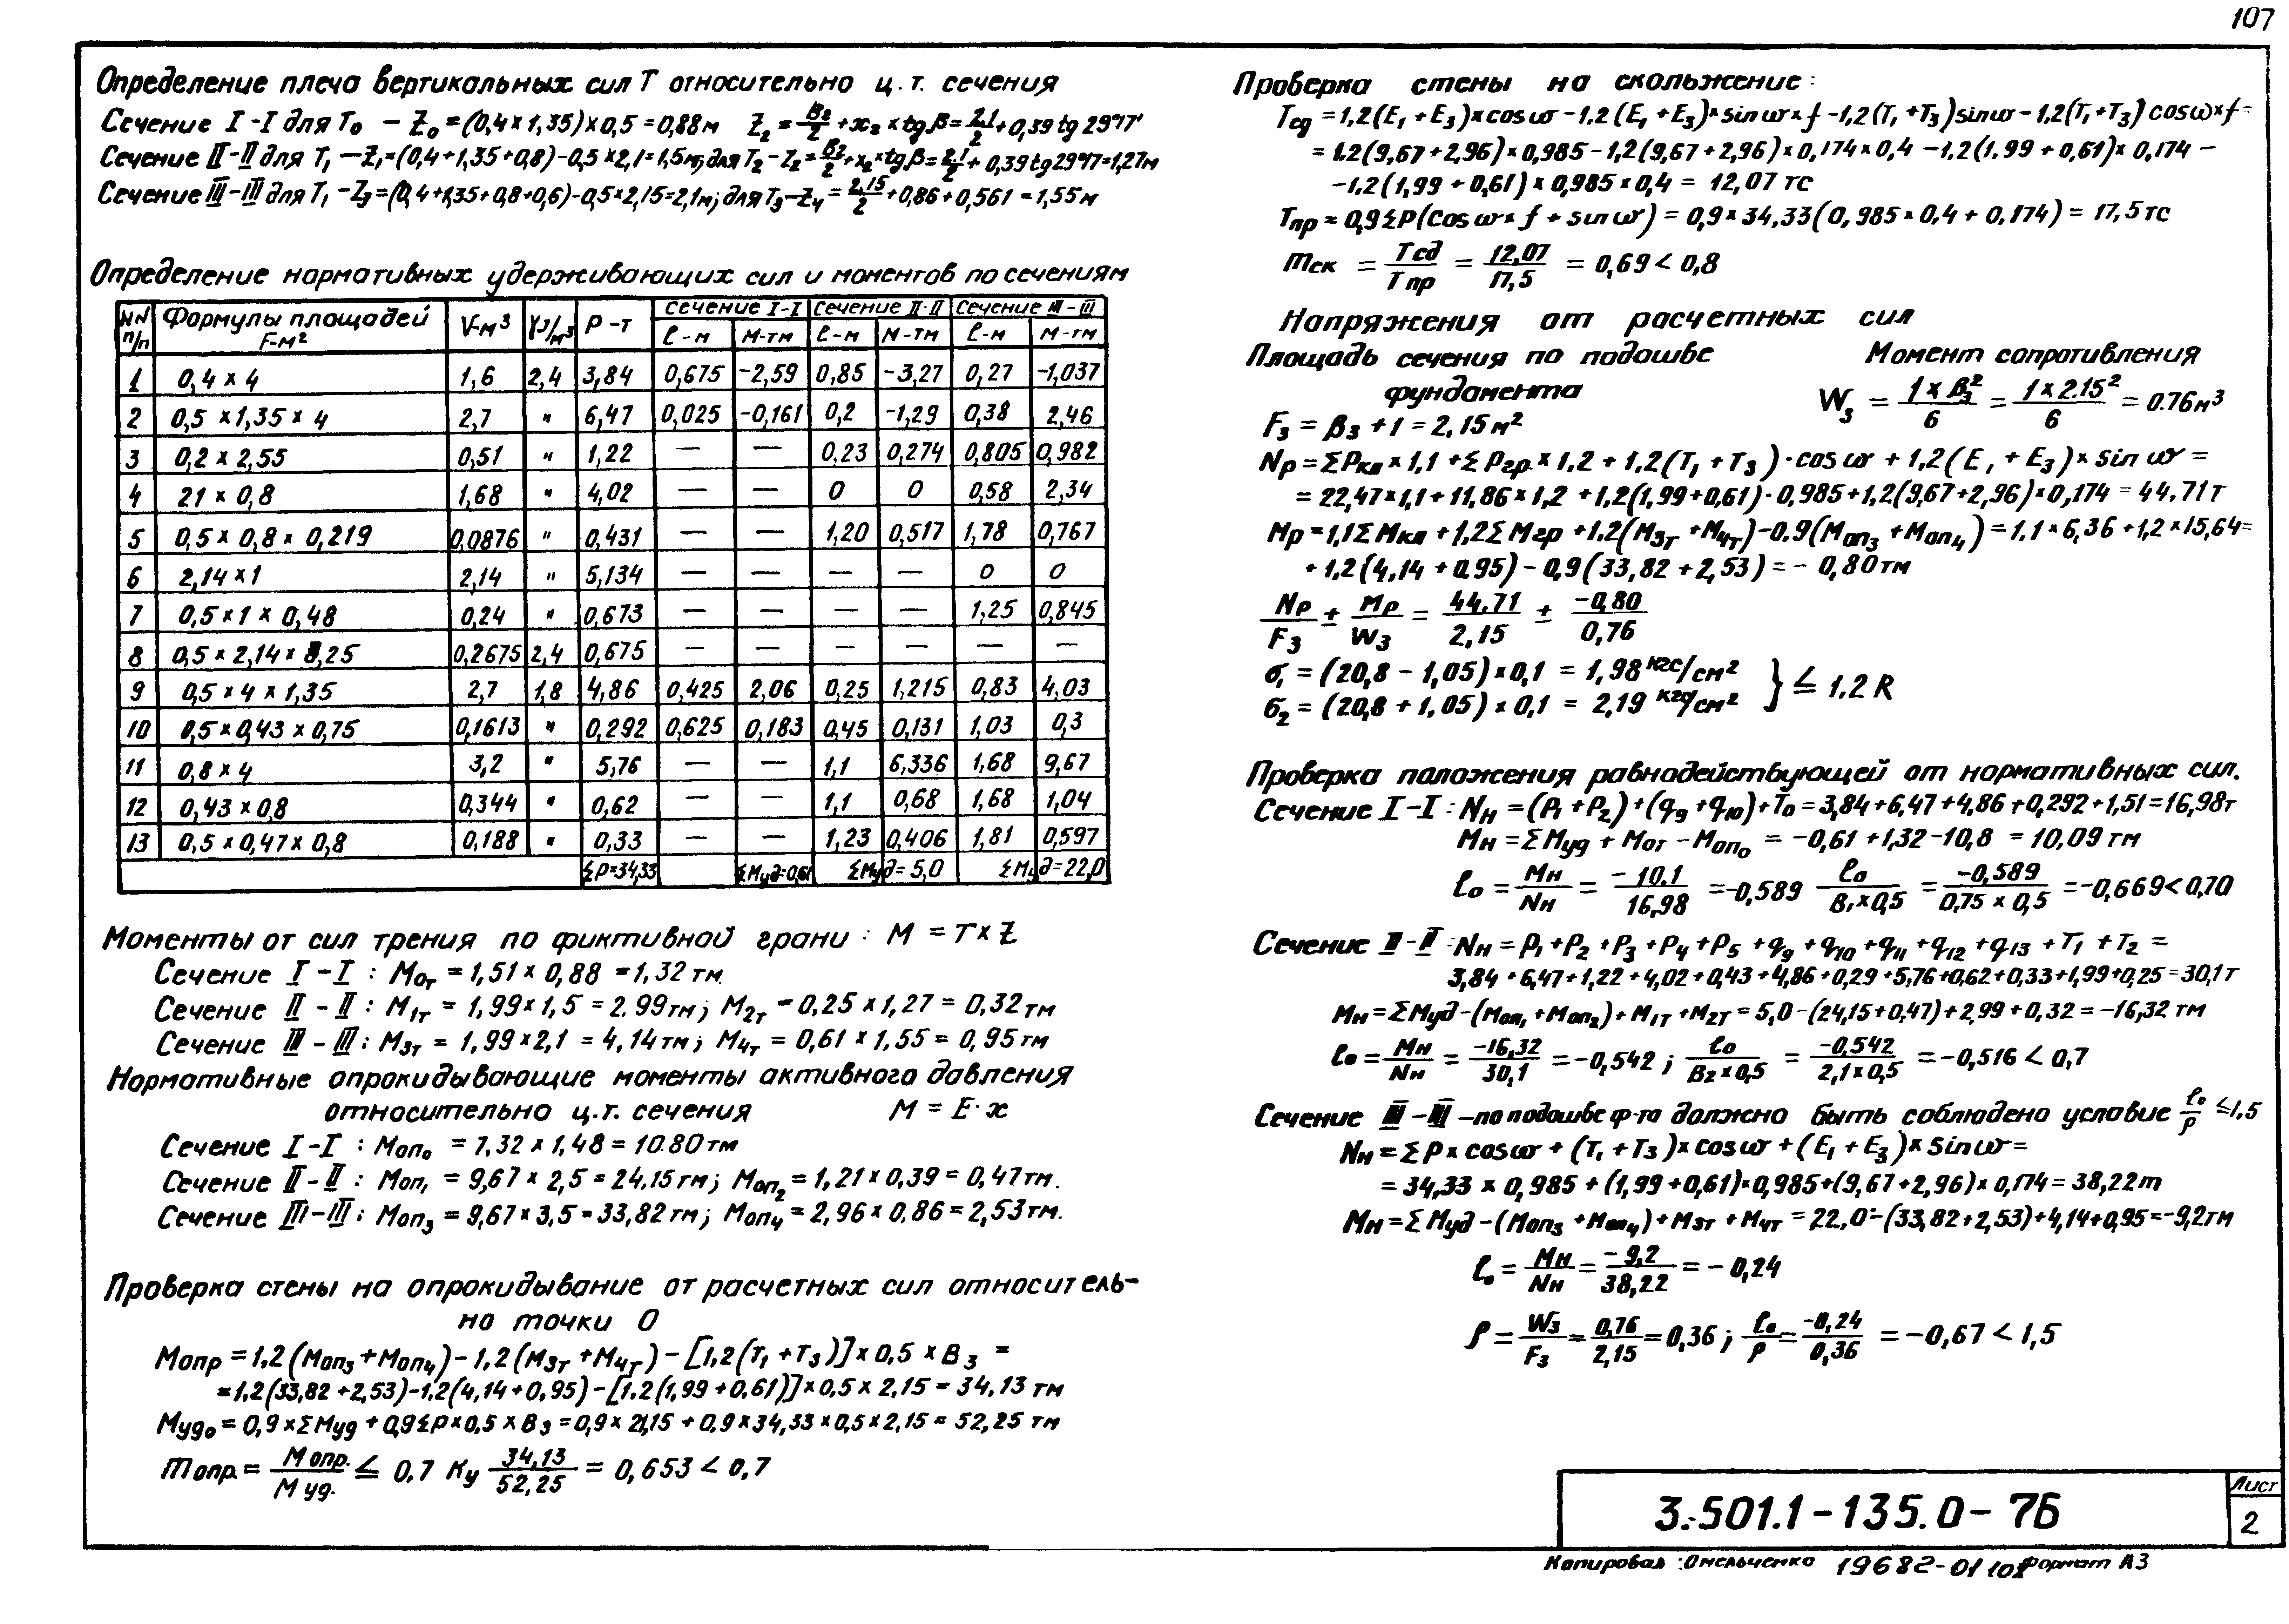 107
Определение плеча вертикальных сил T относительно ц.т. сечения
Сечение I-I для T₀ – Z₀=(0,4×1,35)×0,5=0,88м Z₂=B₂/2+x₂×tgβ=2,1/2+0,39 tg 29°17'
Сечение II-II для T₁ – Z₁=(0,4+1,35+0,8)-0,5×2,1=1,5м; для T₂-Z₂=B₂/2+x₂×tgβ=2,1/2+0,39tg29°17=1,27м
Сечение III-III для T₁ – Z₃=(0,4+1,35+0,8+0,6)-0,5×2,15=2,1м; для T₃-Z₄=2,15/2+0,86+0,561=1,55м
Определение нормативных удерживающих сил и моментов по сечениям
NN п/п Формулы площадей F-м² V-м³ γт/м³ P-т Сечение I-I Сечение II-II Сечение III-III
ℓ-м М-тм ℓ-м М-тм ℓ-м М-тм
1 0,4×4 1,6 2,4 3,84 0,675 -2,59 0,85 -3,27 0,27 -1,037
2 0,5×1,35×4 2,7 " 6,47 0,025 -0,161 0,2 -1,29 0,38 2,46
3 0,2×2,55 0,51 " 1,22 — — 0,23 0,274 0,805 0,982
4 21×0,8 1,68 " 4,02 — — 0 0 0,58 2,34
5 0,5×0,8×0,219 0,0876 " 0,431 — — 1,20 0,517 1,78 0,767
6 2,14×1 2,14 " 5,134 — — — — 0 0
7 0,5×1×0,48 0,24 " 0,673 — — — — 1,25 0,845
8 0,5×2,14×0,25 0,2675 2,4 0,675 — — — — — —
9 0,5×4×1,35 2,7 1,8 4,86 0,425 2,06 0,25 1,215 0,83 4,03
10 0,5×0,43×0,75 0,1613 " 0,292 0,625 0,183 0,45 0,131 1,03 0,3
11 0,8×4 3,2 " 5,76 — — 1,1 6,336 1,68 9,67
12 0,43×0,8 0,344 " 0,62 — — 1,1 0,68 1,68 1,04
13 0,5×0,47×0,8 0,188 " 0,33 — — 1,23 0,406 1,81 0,597
ΣP=34,33 ΣMуд=0,61 ΣMуд=5,0 ΣMуд=22,0
Моменты от сил трения по фиктивной грани: M = T×Z
Сечение I-I : M₀т = 1,51×0,88 = 1,32тм
Сечение II-II : M₁т = 1,99×1,5 = 2.99тм; M₂т = 0,25×1,27 = 0,32тм
Сечение III-III: M₃т = 1,99×2,1 = 4,14тм; M₄т = 0,61×1,55 = 0,95тм
Нормативные опрокидывающие моменты активного давления
относительно ц.т. сечения M = E·x
Сечение I-I : Mоп₀ = 7,32×1,48 = 10.80тм
Сечение II-II : Mоп₁ = 9,67×2,5 = 24,15тм; Mоп₂ = 1,21×0,39 = 0,47тм.
Сечение III-III: Mоп₃ = 9,67×3,5 = 33,82тм; Mоп₄ = 2,96×0,86 = 2,53тм.
Проверка стены на опрокидывание от расчетных сил относитель-
но точки O
Mопр = 1,2(Mоп₃+Mоп₄)-1,2(M₃т+M₄т)-[1,2(T₁+T₃)]×0,5×B₃ =
=1,2(33,82+2,53)-1,2(4,14+0,95)-[1,2(1,99+0,61)]×0,5×2,15=34,13тм
Mуд₀=0,9×ΣMуд+0,9ΣP×0,5×B₃=0,9×21,15+0,9×34,33×0,5×2,15=52,25тм
mопр.= Mопр./Mуд. ≤ 0,7 Kу 34,13/52,25 = 0,653 < 0,7
Проверка стены на скольжение:
Tсд = 1,2(E₁+E₃)×cosω-1.2(E₁+E₃)×sinω×f-1,2(T₁+T₃)sinω-1.2(T₁+T₃)cosω×f=
=1.2(9,67+2,96)×0,985-1,2(9,67+2,96)×0,174×0,4-1.2(1.99+0,61)×0,174-
-1.2(1,99+0,61)×0,985×0,4 = 12,07тс
Tпр = 0,9ΣP(cosω×f+sinω) = 0,9×34,33(0,985×0,4+0,174) = 17,5тс
mск = Tсд/Tпр = 12,07/17,5 = 0,69 < 0,8
Напряжения от расчетных сил
Площадь сечения по подошве Момент сопротивления
фундамента W₃ = 1×B₃²/6 = 1×2.15²/6 = 0.76м³
F₃ = B₃+1 = 2,15м²
Nр=ΣPкл×1,1+ΣPгр×1.2+1.2(T₁+T₃)·cosω+1,2(E₁+E₃)×sinω=
=22,47×1,1+11,86×1,2+1.2(1,99+0,61)·0,985+1,2(9,67+2,96)×0,174=44,71т
Mр=1,1ΣMкл+1,2ΣMгр+1.2(M₃т+M₄т)-0.9(Mоп₃+Mоп₄)=1.1×6,36+1,2×15,64=
+1.2(4,14+0.95)-0,9(33,82+2,53)=-0,80тм
Nр/F₃ ± Mр/W₃ = 44.71/2,15 ± -0,80/0,76
σ₁ = (20,8-1,05)×0,1 = 1,98 кгс/см²
σ₂ = (20,8+1.05)×0,1 = 2,19 кгс/см² } ≤ 1.2 R
Проверка положения равнодействующей от нормативных сил.
Сечение I-I: Nн=(P₁+P₂)+(q₉+q₁₀)+T₀=3,84+6,47+4,86+0,292+1,51=16,98т
Mн=ΣMуд+M₀т-Mоп₀ = -0,61+1,32-10,8 = 10,09тм
ℓ₀ = Mн/Nн = -10.1/16,98 = -0,589 ℓ₀/B₁×0,5 = -0,589/0,75×0,5 = -0,669<0,70
Сечение II-II: Nн=P₁+P₂+P₃+P₄+P₅+q₉+q₁₀+q₁₁+q₁₂+q₁₃+T₁+T₂=
3,84+6,47+1,22+4,02+0,43+4,86+0,29+5,76+0,62+0,33+1,99+0,25=30,1т
Mн=ΣMуд-(Mоп₁+Mоп₂)+M₁т+M₂т=5,0-(24,15+0,47)+2,99+0,32=-16,32тм
ℓ₀ = Mн/Nн = -16,32/30,1 = -0,542; ℓ₀/B₂×0,5 = -0,542/2,1×0,5 = -0,516 < 0,7
Сечение III-III-по подошве ф-та должно быть соблюдено условие ℓ₀/ρ ≤1,5
Nн=ΣP×cosω+(T₁+T₃)×cosω+(E₁+E₃)×sinω=
=34,33×0,985+(1,99+0,61)×0,985+(9,67+2,96)×0,174=38,22т
Mн=ΣMуд-(Mоп₃+Mоп₄)+M₃т+M₄т=22,0-(33,82+2,53)+4,14+0,95=-9,2тм
ℓ₀ = Mн/Nн = -9,2/38,22 = -0,24
ρ = W₃/F₃ = 0,76/2,15 = 0,36; ℓ₀/ρ = -0,24/0,36 = -0,67 < 1,5
3.501.1-135.0-7Б
Лист
2
Копировал: Омельченко 19682-01 108 Формат А3